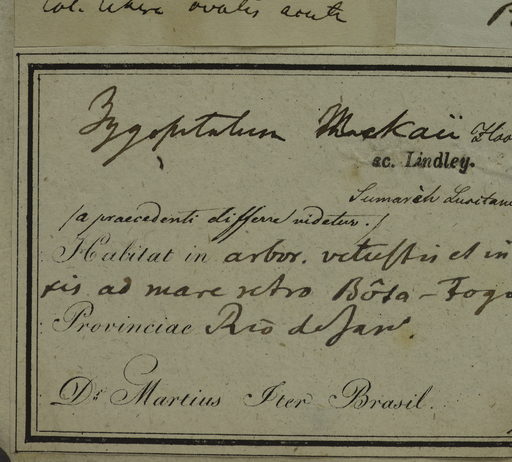 col. Utera ovatis acute
Zygopetalum Mackaii Hoo
ac. Lindley.
Sumarèh Lusitan
/a praecedenti differre videtur./
Habitat in arbor. vetustis et in
xis ad mare retro Bôta-Fogo
Provinciae Rio de Jan.
Dr. Martius Iter Brasil.